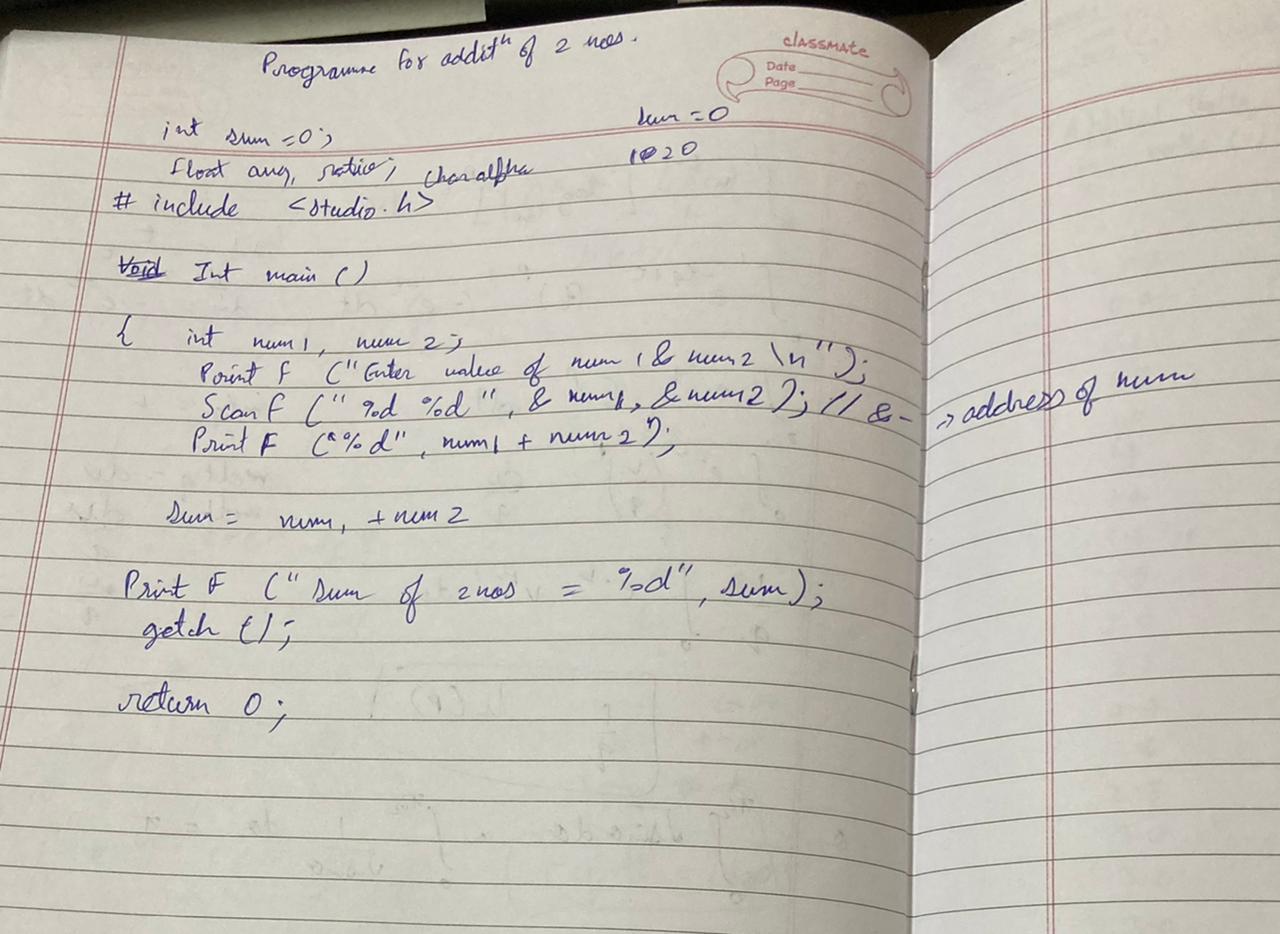 Programme for addit^n of 2 nos.
classmate
Date
Page
int sum = 0;
sum = 0
float avg, ratio; char alpha
10 20
# include <studio.h>
Void Int main ()
{ int num1, num 2;
Print f ("Enter value of num 1 & num2 \n");
Scan f ("%d %d", & num1, &num2); // & - -> address of num
Print F ("%d", num1 + num 2");
sum = num1 + num 2
Print F ("Sum of 2 nos = %d", sum);
getch ();
return 0;